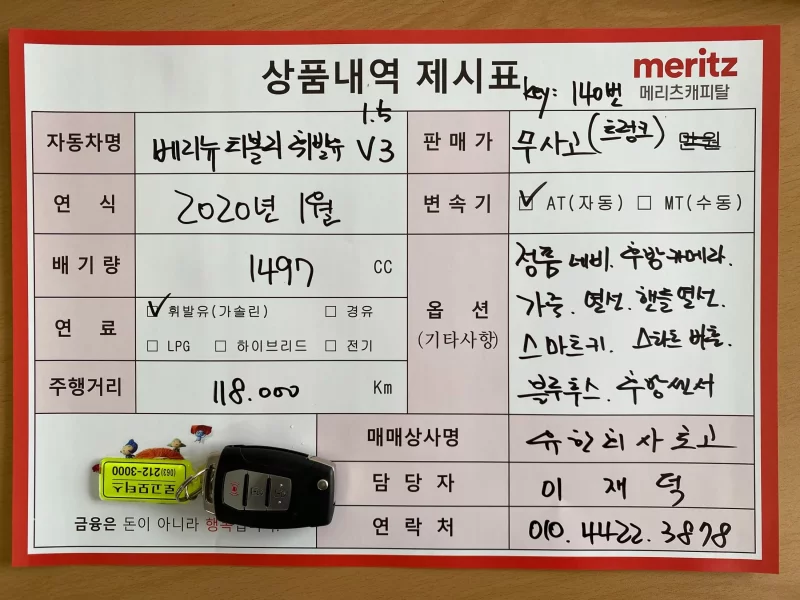 상품내역 제시표
meritz
메리츠캐피탈
key: 140번
자동차명
1.5
베리뉴 티볼리 휘발유 V3
판매가
무사고(트렁크) 만원
연 식
2020년 1월
변속기
AT(자동) MT(수동)
배기량
1497 CC
옵 션
(기타사항)
정품 네비. 후방카메라.
가죽. 열선. 핸들열선.
스마트키. 스타트 버튼.
블루투스. 후방센서
연 료
휘발유(가솔린) 경유
LPG 하이브리드 전기
주행거리
118.000 Km
매매상사명
담당자
이 재 덕
연락처
010. 4422. 3878
로고모터스
(063)212-3000
금융은 돈이 아니라